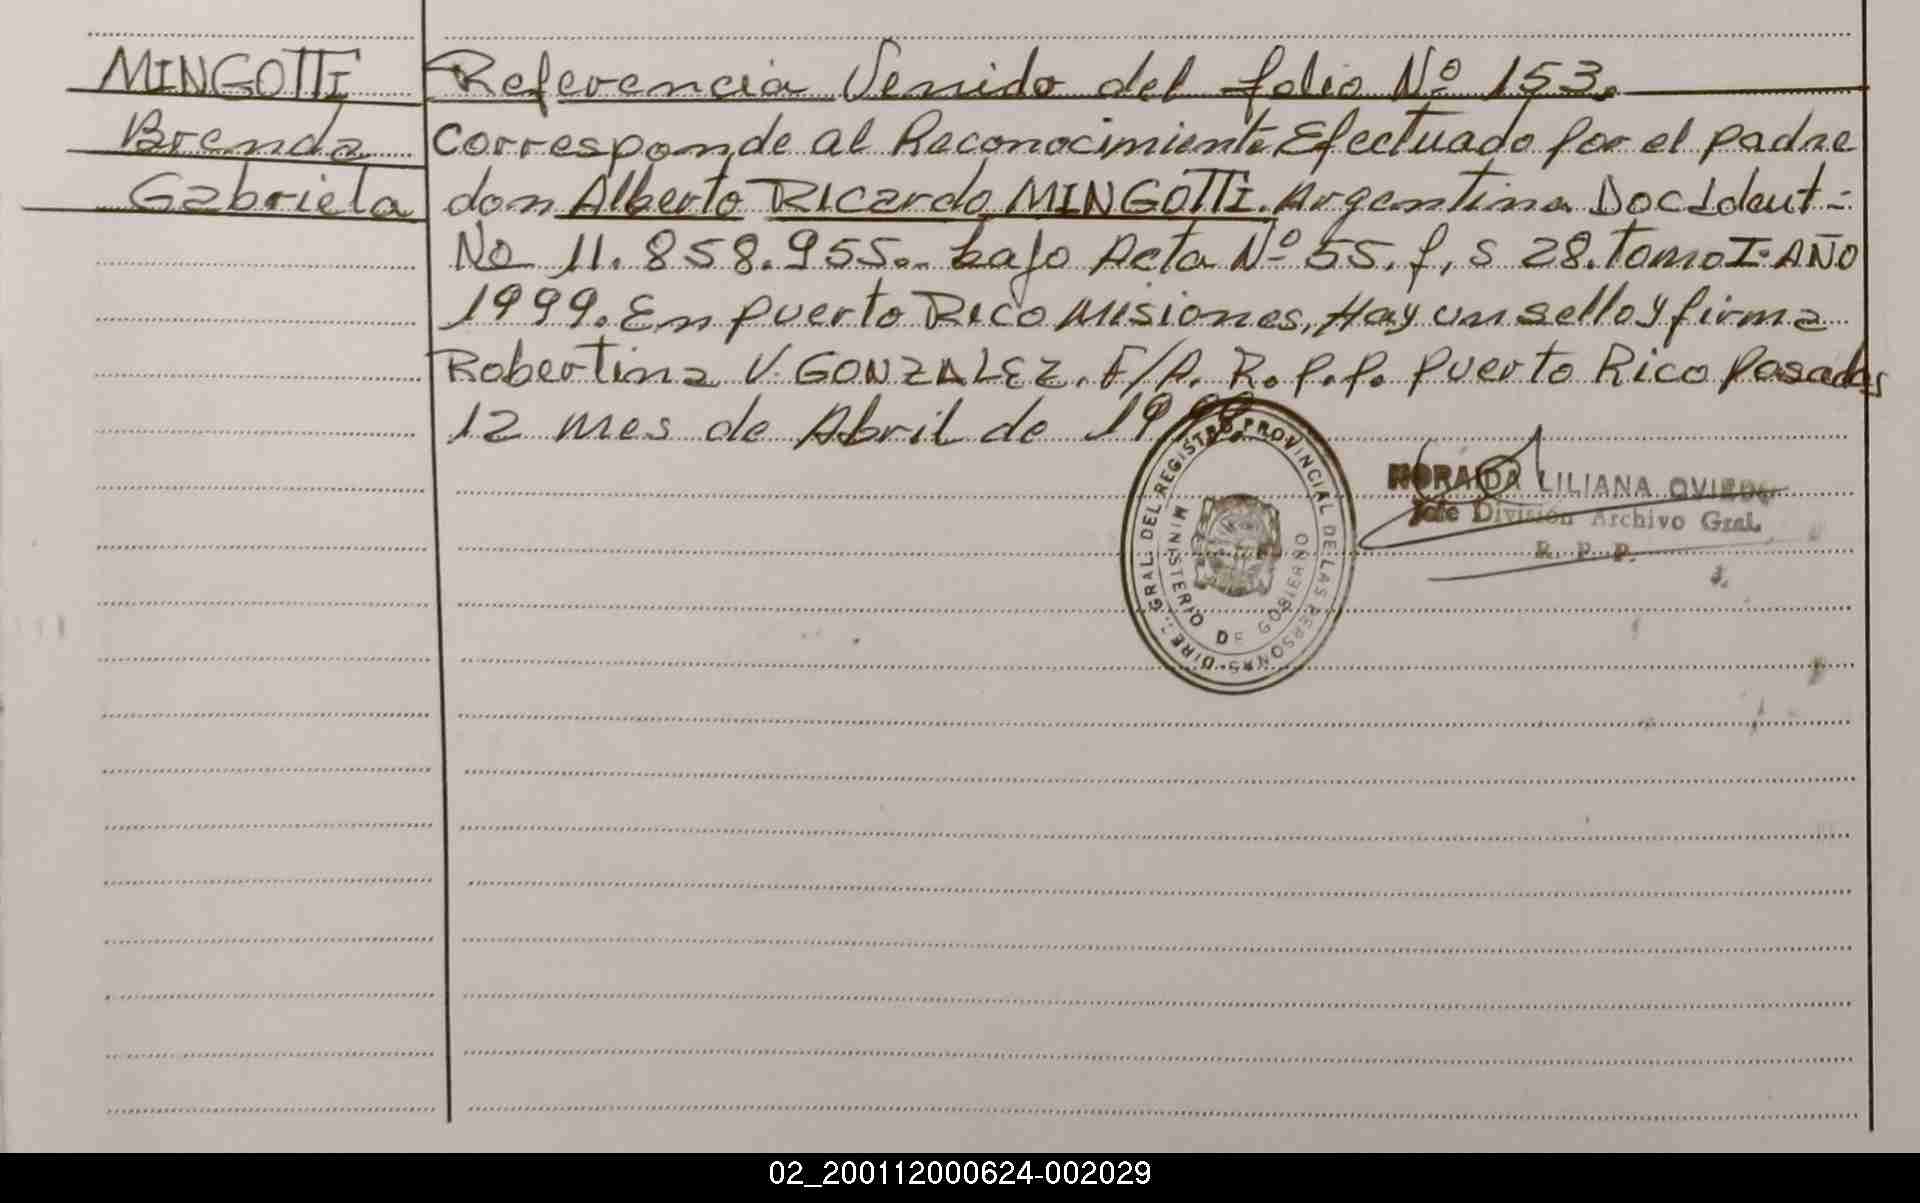 MINGOTTI
Brenda
Gabriela
Referencia Venido del folio Nº 153.
Corresponde al Reconocimiento Efectuado por el padre
don Alberto Ricardo MINGOTTI. Argentino Doc Ident-
No 11.858.955. bajo Acta Nº 55. f,s 28. tomo I. AÑO
1999. En puerto Rico Misiones, Hay un sello y firma
Robertina V. GONZALEZ. F/A. R.P.P. puerto Rico Posadas
12 mes de Abril de 1999.
DIREC. GRAL. DEL REGISTRO PROVINCIAL DE LAS PERSONAS
MINISTERIO DE GOBIERNO
NORAIDA LILIANA OVIEDO
Jefe División Archivo Gral.
R. P. P.
02_200112000624-002029